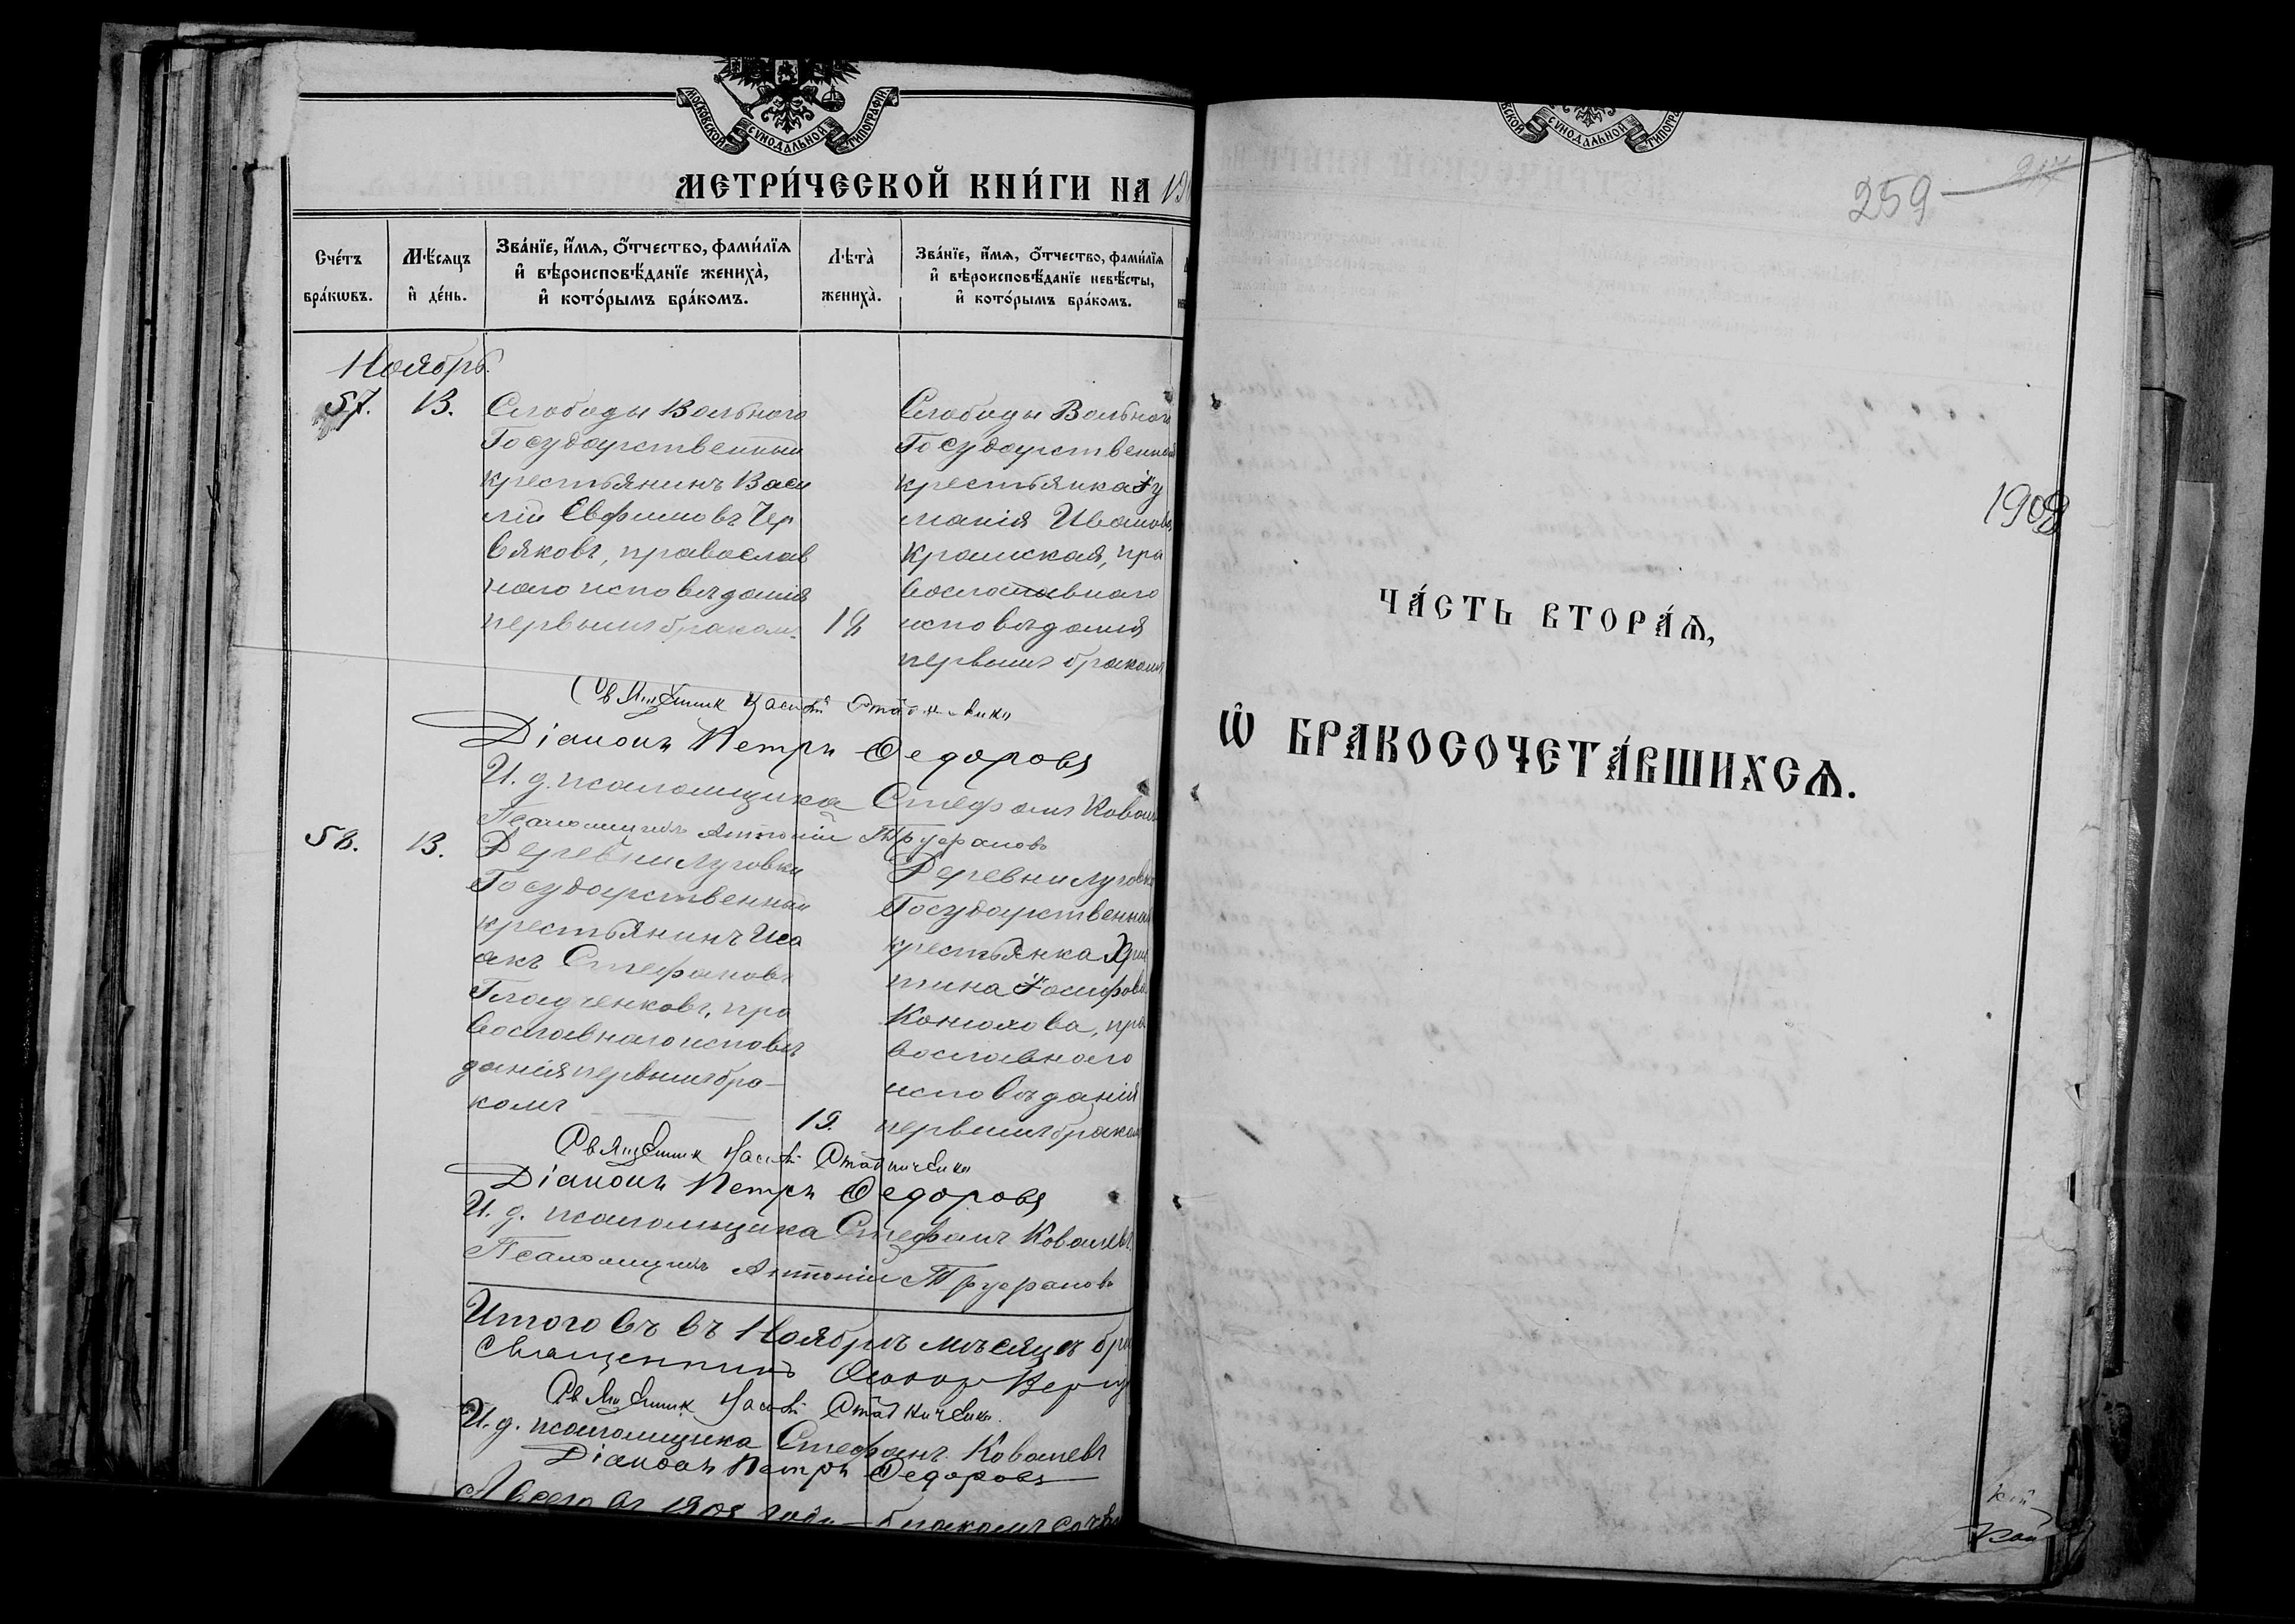 МОСКОВСКОЙ СѴНОДАЛЬНОЙ ТИПОГРАФІИ
МЕТРИ́ЧЕСКОЙ КНИ́ГИ НА 19
Сче́тъ бра́кѡвъ.
Мѣ́сяцъ и҆ де́нь.
Зва́нїе, и҆́мѧ, ѻ҆́тчество, фами́лїѧ
и҆ вѣроисповѣ́данїе жениха̀,
и҆ кото́рымъ бра́комъ.
Лѣта̀ жениха̀.
Зва́нїе, и҆́мѧ, ѻ҆́тчество, фами́лїѧ
и҆ вѣроисповѣ́данїе невѣ́сты,
и҆ кото́рымъ бра́комъ.
Ноябрь.
57. 13.
Слободы Вольного
Государственный
крестьянинъ Васи
лій Евфимовъ Чер
вяковъ, православ
наго исповѣданія
первымъ бракомъ.
18
Слободы Вольного
Государственная
крестьянка
Иванова
Крамская, пра
вославнаго
исповѣданія
первымъ бракомъ
Священник
Діаконъ Петръ Ѳедоровъ
И. д. псаломщика Стефанъ Ковал
Псаломщикъ Антоній Труфановъ
58. 13.
Деревни Луговки
Государственный
крестьянинъ Иса
акъ Стефановъ
Гладченковъ, пра
вославнаго исповѣ
данія первымъ бра-
комъ
19.
Деревни Луговки
Государственная
крестьянка Хрис
тина Іосифова
Конюхова, пра
вославнаго
исповѣданія
первымъ бракомъ
Священник
Діаконъ Петръ Ѳедоровъ
И. д. псаломщика Стефанъ Ковалевъ
Псаломщикъ Антоній Труфановъ
Итого въ въ Ноябрѣ мѣсяцѣ бра
Священникъ
Священник
И. д. псаломщика Стефанъ Ковалевъ
Діаконъ Петръ Ѳедоровъ
А всего въ 1908 году бракомъ
СКОЙ СѴНОДАЛЬНОЙ ТИПОГРА
259
217
1908
ЧА́СТЬ ВТОРА́Ѧ,
Ѡ҆ БРАКОСОЧЕТА́ВШИХСѦ.